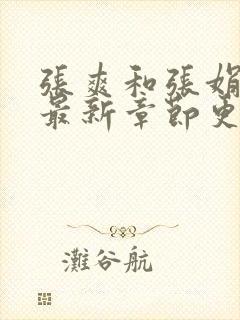 張爽和張娟
最新章節更
灘谷航